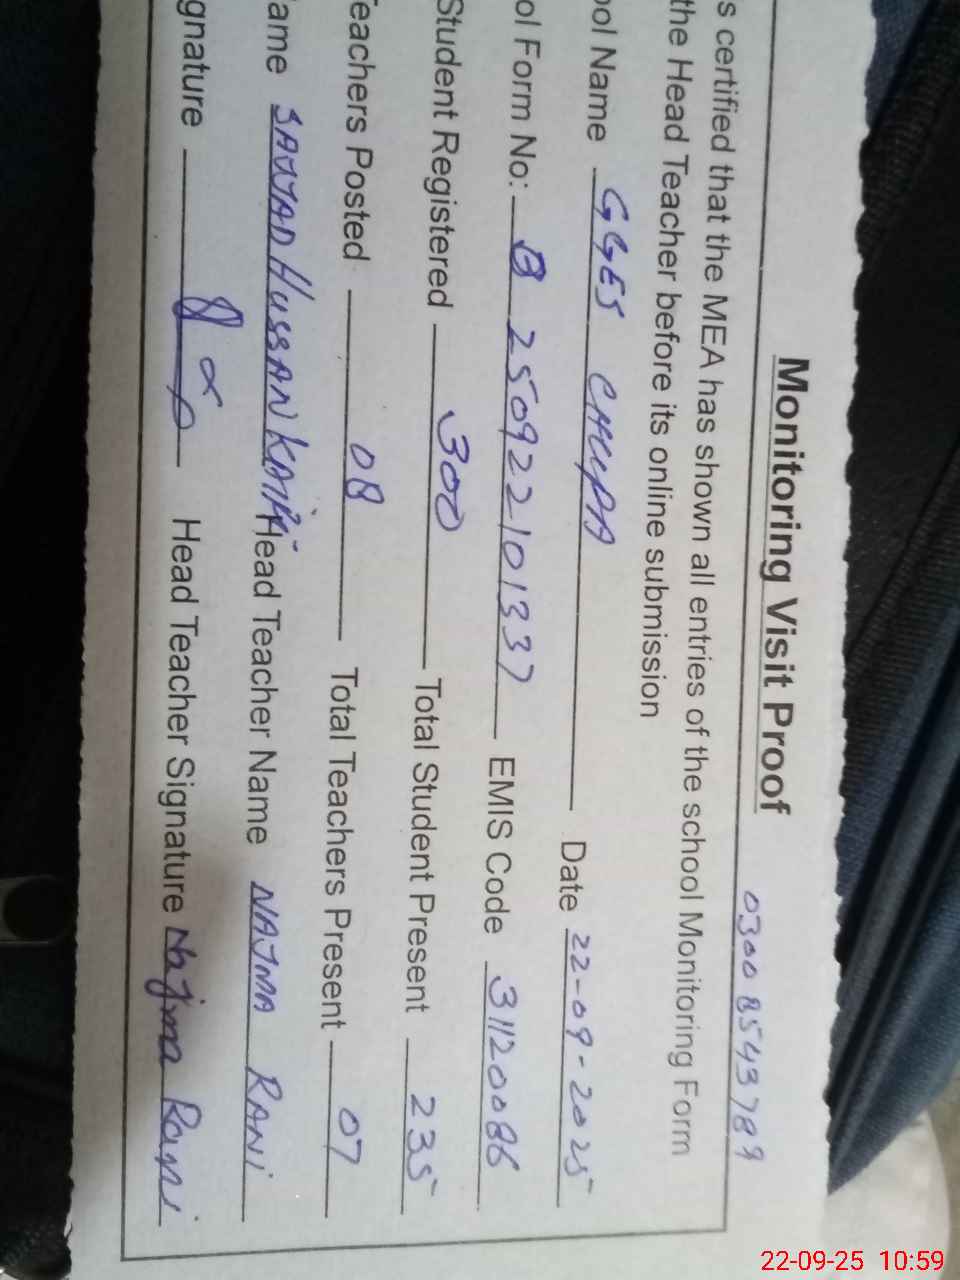 Monitoring Visit Proof 0300 8543789
s certified that the MEA has shown all entries of the school Monitoring Form
the Head Teacher before its online submission
ool Name GGES Date 22-09-2025
ol Form No: 250922101337 EMIS Code 31120086
Student Registered 300 Total Student Present 235
Teachers Posted 08 Total Teachers Present 07
ame SAJJAD HUSSAN Head Teacher Name NAJMA RANI
gnature Head Teacher Signature Najma Rani
22-09-25 10:59